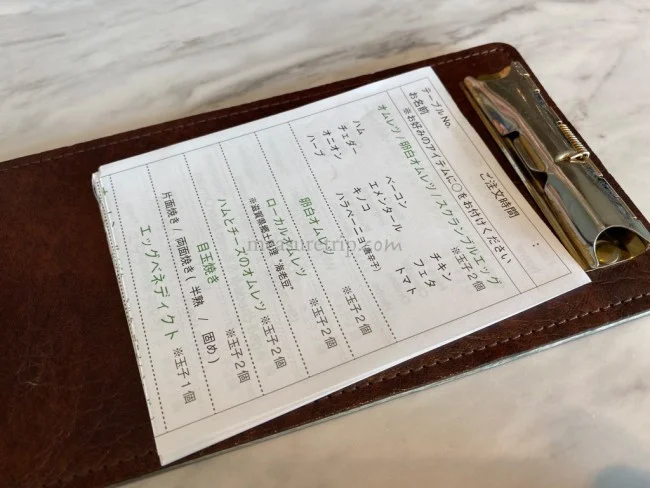 テーブルNo.
ご注文時間 :
お名前
※お好みのアイテムに○をお付けください
オムレツ / 卵白オムレツ / スクランブルエッグ ※玉子2個
ハム ベーコン チキン
チェダー エメンタール フェタ
オニオン キノコ トマト
ハーブ ハラペーニョ(唐辛子)
卵白オムレツ ※玉子2個
ローカルオムレツ ※玉子2個
※滋賀県郷土料理 "海老豆"
ハムとチーズのオムレツ ※玉子2個
目玉焼き ※玉子2個
片面焼き / 両面焼き ( 半熟 / 固め )
エッグベネディクト ※玉子1個